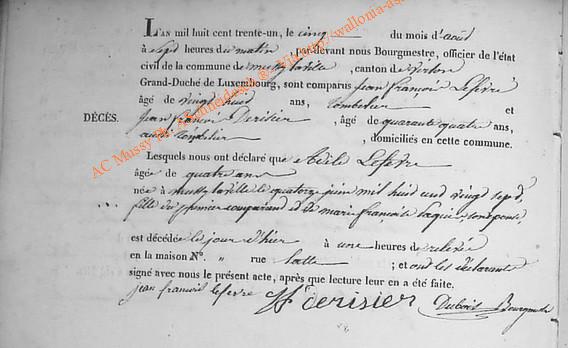 L'AN mil huit cent trente-un, le cinq du mois d'août
à sept heures du matin, par-devant nous Bourgmestre, officier de l'état
civil de la commune de mussy la ville, canton de virton
Grand-Duché de Luxembourg, sont comparus jean françois Lefevre
âgé de vingt huit ans, tombelier et
DÉCÈS.
jean françois Derisier, âgé de quarante quatre ans,
aussi tombelier, domiciliés en cette commune.
Lesquels nous ont déclaré que Adèle Lefevre
âgée de quatre ans
née à mussy la ville le quatorze juin mil huit cent vingt sept,
fille du premier comparant et de marie françoise son épouse
est décédée le jour d'hier à une heures de relevée
en la maison N°. " rue ; et ont les déclarants
signé avec nous le présent acte, après que lecture leur en a été faite.
jean francois lefevre derisier Dubois Bourgmestre
AC Mussy
http://wallonia-as